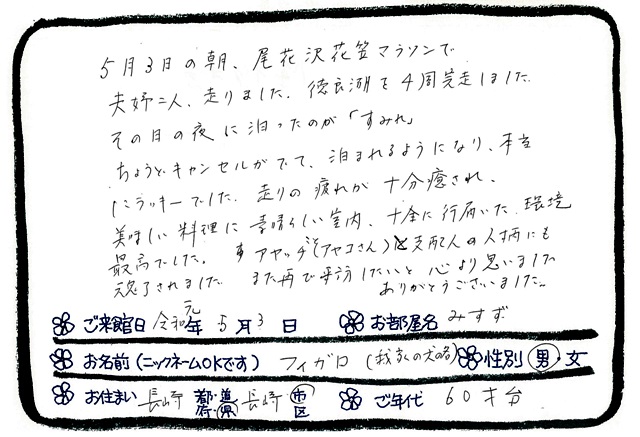 5月3日の朝、尾花沢花笠マラソンで
夫婦二人、走りました。徳良湖を4周完走しました。
その日の夜に泊ったのが「すみれ」
ちょうどキャンセルがでて、泊まれるようになり、本当
にラッキーでした。走りの疲れが十分癒され、
美味しい料理に素晴らしい室内、十全に行届いた環境
最高でした。アヤッチ(アヤコさん)と支配人の人柄にも
魅了されました。また再で来訪したいと心より思いました
ありがとうございました。
ご来館日 令和元年 5月 3日 お部屋名 みすず
お名前(ニックネームOKです) フィガロ(我家の犬 性別 男・女
お住まい 長崎 都・道・府・県 長崎 市・区 ご年代 60才台